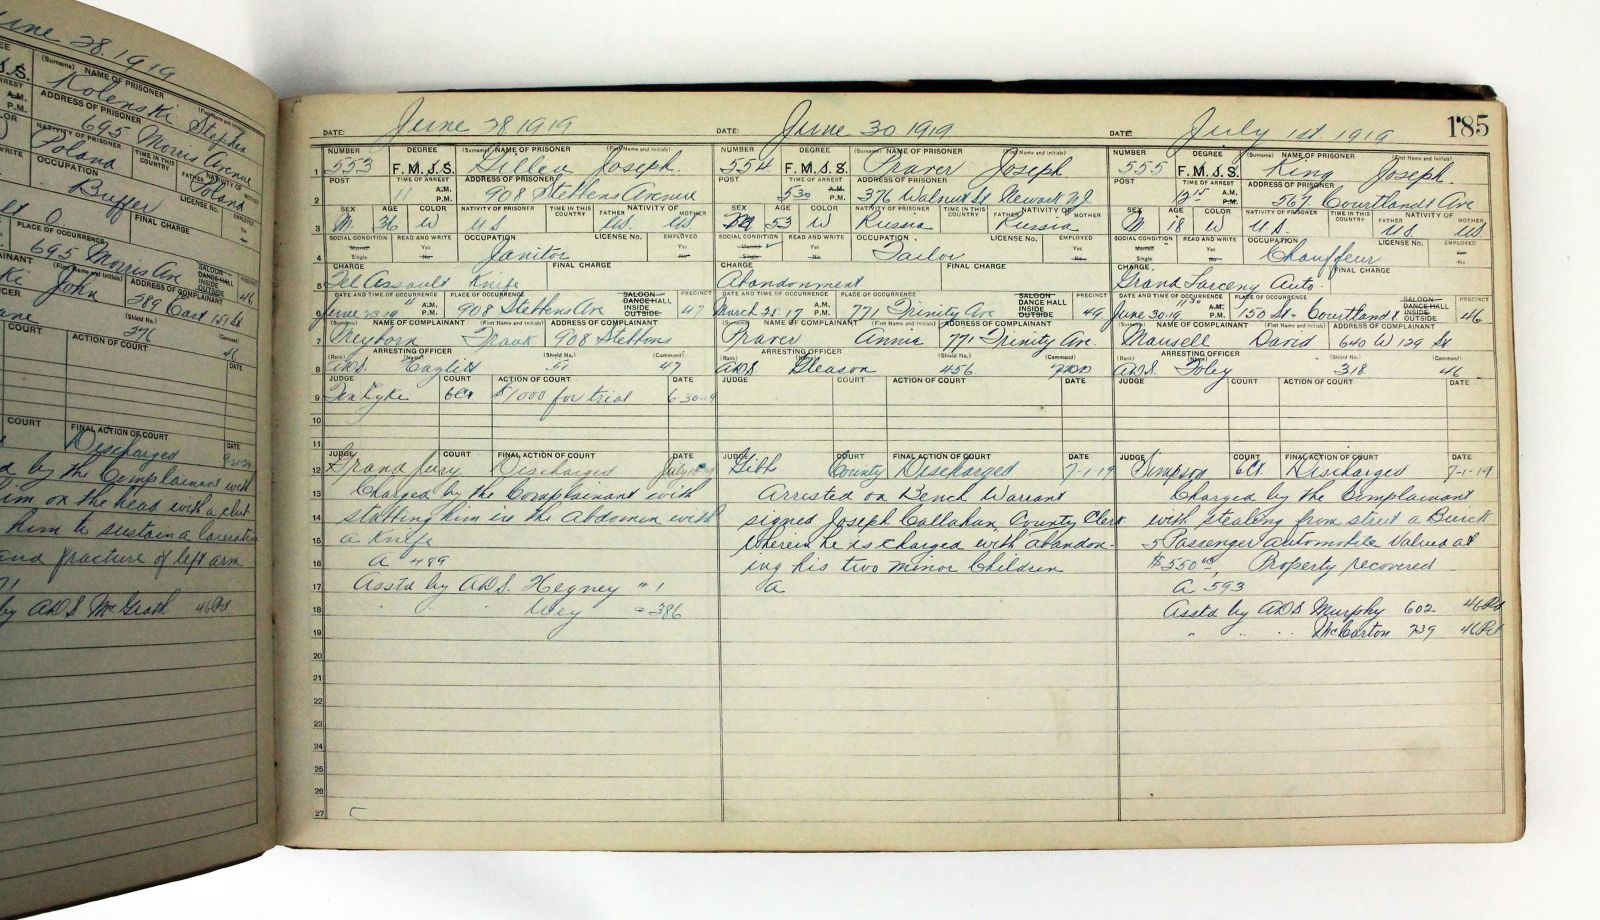 June 28. 1919
(Surname) NAME OF PRISONER (First Name and Initials)
Kolenski Stephen
ADDRESS OF PRISONER
695 Morris Avenue
NATIVITY OF PRISONER TIME IN THIS COUNTRY FATHER NATIVITY OF
Poland Poland
OCCUPATION LICENSE No.
Buffer
FINAL CHARGE
PLACE OF OCCURRENCE SALOON DANCE HALL INSIDE OUTSIDE PRECINCT
695 Morris Ave 46
(First Name and Initials) ADDRESS OF COMPLAINANT
John 389 East 151 St
(Shield No.) (Command)
276
COURT ACTION OF COURT DATE
COURT FINAL ACTION OF COURT DATE
Discharged
by the Complainant with
him on the head with a
him to sustain a laceration
and fracture of left arm
by ADS McGrath 46 Pct
185
DATE: June 28 1919
NUMBER DEGREE (Surname) NAME OF PRISONER (First Name and Initials)
1 553 F. M. J. S. Joseph.
POST TIME OF ARREST ADDRESS OF PRISONER
2 11 A.M. P.M. 908 Stebbens Avenue
SEX AGE COLOR NATIVITY OF PRISONER TIME IN THIS COUNTRY FATHER NATIVITY OF MOTHER
3 M. 36 W US US. US.
SOCIAL CONDITION READ AND WRITE OCCUPATION LICENSE No. EMPLOYED
4 Married Single Yes No Janitor Yes No
CHARGE FINAL CHARGE
5 Fel Assault Knife
DATE AND TIME OF OCCURRENCE PLACE OF OCCURRENCE SALOON DANCE HALL INSIDE OUTSIDE PRECINCT
6 June 23-19 A.M. P.M. 908 Stebbens Ave 47
(Surname) NAME OF COMPLAINANT (First Name and Initials) ADDRESS OF COMPLAINANT
7 Frank 908 Stebbens
(Rank) ARRESTING OFFICER (Name) (Shield No.) (Command)
8 ADS. 51 47
JUDGE COURT ACTION OF COURT DATE
9 TenEyke 6 Ct $1000 for trial 6-30-19
10
11
JUDGE COURT FINAL ACTION OF COURT DATE
12 Grand Jury Discharged July
13 Charged by the Complainant with
14 stabbing him in the abdomen with
15 a Knife
16 A 499
17 Asstd by ADS. Hegney " 1
18 " " " Wey = 386
19
20
21
22
23
24
25
26
27
DATE: June 30 1919
NUMBER DEGREE (Surname) NAME OF PRISONER (First Name and Initials)
554 F. M. J. S. Praver Joseph.
POST TIME OF ARREST ADDRESS OF PRISONER
5 30 A.M. P.M. 376 Walnut St Newark N.J.
SEX AGE COLOR NATIVITY OF PRISONER TIME IN THIS COUNTRY FATHER NATIVITY OF MOTHER
M 53 W Russia Russia
SOCIAL CONDITION READ AND WRITE OCCUPATION LICENSE No. EMPLOYED
Married Single Yes No Tailor Yes No
CHARGE FINAL CHARGE
Abandonment
DATE AND TIME OF OCCURRENCE PLACE OF OCCURRENCE SALOON DANCE HALL INSIDE OUTSIDE PRECINCT
March 21-17 A.M. P.M. 771 Trinity Ave 49
(Surname) NAME OF COMPLAINANT (First Name and Initials) ADDRESS OF COMPLAINANT
Praver Annie 771 Trinity Ave.
(Rank) ARRESTING OFFICER (Name) (Shield No.) (Command)
ADS. Gleason 456
JUDGE COURT ACTION OF COURT DATE
JUDGE COURT FINAL ACTION OF COURT DATE
Gibbs County Discharged 7-1-19
Arrested on Bench Warrant
signed Joseph Callahan, County Clerk
wherein he is charged with abandon-
ing his two minor Children
A
DATE: July 1st 1919
NUMBER DEGREE (Surname) NAME OF PRISONER (First Name and Initials)
555 F. M. J. S. King Joseph.
POST TIME OF ARREST ADDRESS OF PRISONER
12 15 A.M. P.M. 567 Courtlandt Ave
SEX AGE COLOR NATIVITY OF PRISONER TIME IN THIS COUNTRY FATHER NATIVITY OF MOTHER
M 18 W U.S. US US
SOCIAL CONDITION READ AND WRITE OCCUPATION LICENSE No. EMPLOYED
Married Single Yes No Chauffeur Yes No
CHARGE FINAL CHARGE
Grand Larceny Auto.
DATE AND TIME OF OCCURRENCE PLACE OF OCCURRENCE SALOON DANCE HALL INSIDE OUTSIDE PRECINCT
June 30-19. 11 30 A.M. P.M. 150 St - Courtlandt 46
(Surname) NAME OF COMPLAINANT (First Name and Initials) ADDRESS OF COMPLAINANT
Mansell David 640 W 129 St
(Rank) ARRESTING OFFICER (Name) (Shield No.) (Command)
ADS. Foley 318 46
JUDGE COURT ACTION OF COURT DATE
JUDGE COURT FINAL ACTION OF COURT DATE
Simpson 6 Ct. Discharged 7-1-19
Charged by the Complainant
with stealing from street a Buick
5 Passenger automobile Valued at
$550.00, Property recovered
A 593
Asstd by ADS Murphy 602 46 Pct
" " " McCarton 739 46 Pct